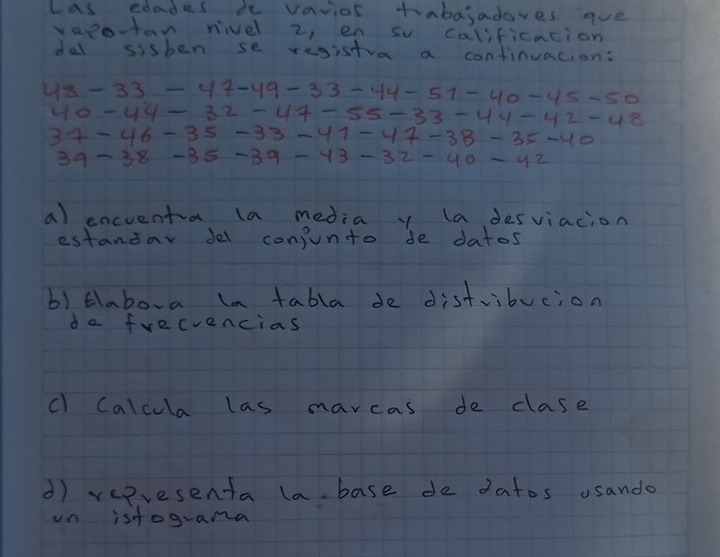 Las edades de varios trabajadores que
reportan nivel 2, en su calificacion
del sisben se registra a continuacion:
48 - 33 - 47 - 49 - 33 - 44 - 51 - 40 - 45 - 50
40 - 44 - 32 - 47 - 55 - 33 - 44 - 42 - 48
37 - 46 - 35 - 33 - 41 - 47 - 38 - 35 - 40
39 - 38 - 35 - 39 - 43 - 32 - 40 - 42
a) encuentra la media y la desviacion
estandar del conjunto de datos
b) Elabora la tabla de distribucion
de frecuencias
c) Calcula las marcas de clase
d) representa la base de datos usando
un istograma